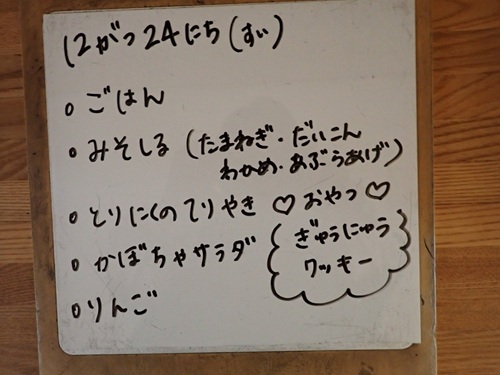 12がつ24にち(すい)
○ごはん
○みそしる(たまねぎ・だいこん
わかめ・あぶらあげ)
○とりにくのてりやき
○かぼちゃサラダ
○りんご
♡おやつ♡
ぎゅうにゅう
クッキー